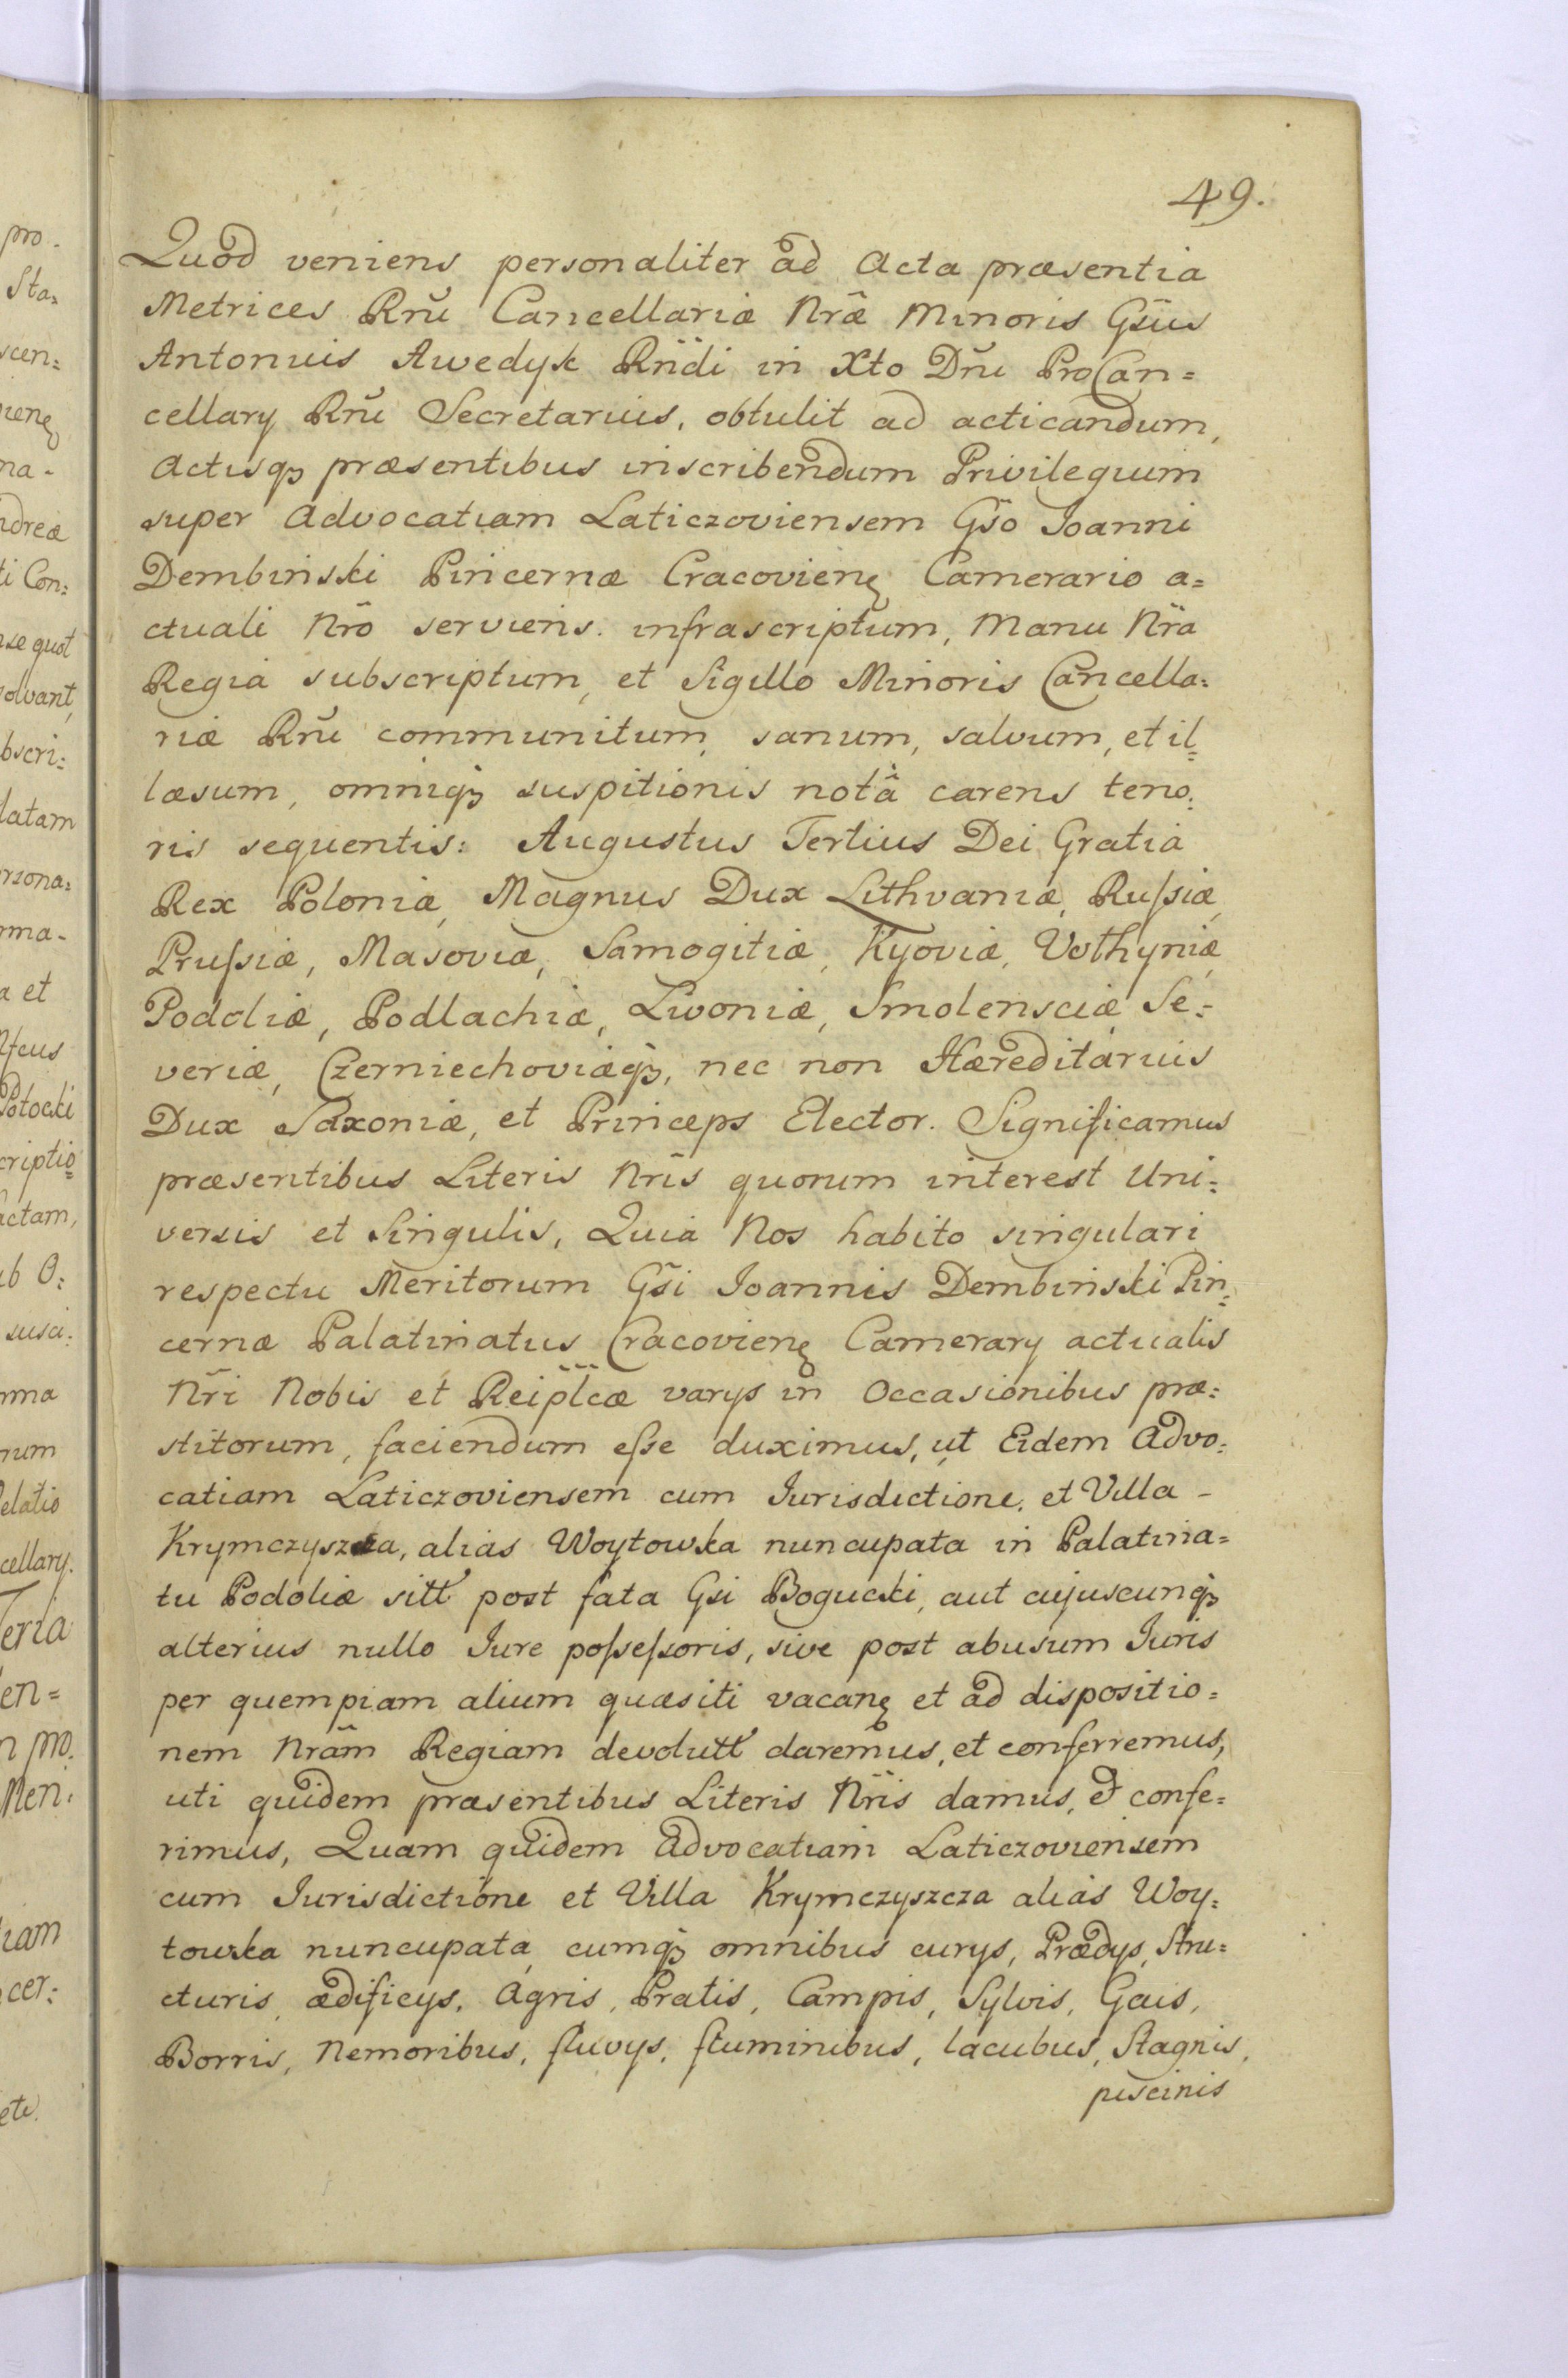 49.
Quod veniens personaliter ad Acta præsentia
Metrices Rnũ Cancellariæ Nræ Minoris Gsus
Antonius Awedyk Rndi in Xto Dni ProCan=
cellary Rnĩ Secretarius, obtulit ad acticandum,
Actisqȝ præsentibus inscribendum Privilegium
super Advocatiam Laticzoviensem Gso Joanni
Dembinski Pincernæ Cracovienȩ Camerario a=
ctuali Nro serviens. infrascriptum, Manu Nra
Regia subscriptum, et Sigillo Minoris Cancella=
riæ Rnĩ communitum, sanum, salvum, et il=
læsum, omniqȝ suspitionis notâ carens teno=
ris sequentis: Augustus Tertius Dei Gratia
Rex Poloniæ, Magnus Dux Lithvaniæ, Rußiæ,
Prußiæ, Masoviæ, Samogitiæ, Kyoviæ, Volhyniæ,
Podoliæ, Podlachiæ, Livoniæ, Smolensciæ, Se=
veriæ, Czerniechoviæqȝ, nec non Hæreditarius
Dux Saxoniæ, et Princeps Elector. Significamus
præsentibus Literis Nris quorum interest Uni=
versis et Singulis, Quia Nos habito singulari
respectu Meritorum Gsi Joannis Dembinski Pin=
cernæ Palatinatus Cracovienȩ Camerary actualis
Nri Nobis et Reiplcæ varys in Occasionibus præ=
stitorum, faciendum eße duximus, ut Eidem Advo=
catiam Laticzoviensem cum Jurisdictione, et Villa -
Krymczyszcza, alias Woytowka nuncupata in Palatina=
tu Podoliæ sitt post fata Gsi Bogucki, aut cujuscunqȝ
alterius nullo Jure poßeßoris, sive post abusum Juris
per quempiam alium quæsiti vacanȩ et ad dispositio=
nem Nram Regiam devolutt daremus, et conferremus,
uti quidem præsentibus Literis Nris damus, et confe=
rimus, Quam quidem Advocatiam Laticzoviensem
cum Jurisdictione et Villa Krymczyszcza alias Woy=
towka nuncupata, cumqȝ omnibus curys, Prædys, Stru=
cturis, ædificys, Agris, Pratis, Campis, Sylvis, Gais,
Borris, Nemoribus, fluvys, fluminibus, lacubus, Stagnis,
piscinis